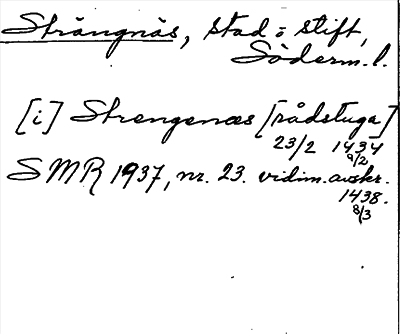 Strängnäs, stad o stift,
Söderm. l.
[i] Strengenæs [rådstuga]
23/2 1434
9/2
SMR 1937, nr. 23. vidim. avskr.
1438.
8/3